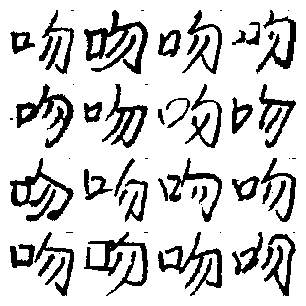 吻吻吻吻
吻吻吻吻
吻吻吻吻
吻吻吻吻